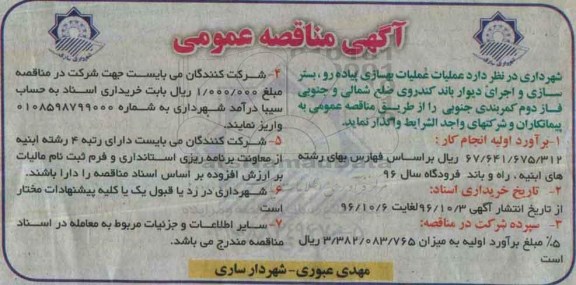 آگهی مناقصه عمومی
شهرداری ساری
شهرداری ساری
شهرداری در نظر دارد عملیات عملیات بهسازی پیاده رو، بستر
سازی و اجرای دیوار باند کندروی ضلع شمالی و جنوبی
فاز دوم کمربندی جنوبی را از طریق مناقصه عمومی به
پیمانکاران و شرکتهای واجد الشرایط واگذار نماید.
۱- برآورد اولیه انجام کار:
۶۷/۶۴۱/۶۷۵/۳۱۲ ریال براساس فهارس بهای رشته
های ابنیه، راه و باند فرودگاه سال ۹۶
۲- تاریخ خریداری اسناد:
از تاریخ انتشار آگهی ۹۶/۱۰/۳ لغایت ۹۶/۱۰/۶
۳- سپرده شرکت در مناقصه:
۵٪ مبلغ برآورد اولیه به میزان ۳/۳۸۲/۰۸۳/۷۶۵ ریال
است
۴- شرکت کنندگان می بایست جهت شرکت در مناقصه
مبلغ ۱/۰۰۰/۰۰۰ ریال بابت خریداری اسناد به حساب
سیبا درآمد شهرداری به شماره ۰۱۰۸۵۹۸۷۹۹۰۰۰
واریز نمایند.
۵- شرکت کنندگان می بایست دارای رتبه ۴ رشته ابنیه
از معاونت برنامه ریزی استانداری و فرم ثبت نام مالیات
بر ارزش افزوده بر اساس اسناد مناقصه را دارا باشند.
۶- شهرداری در رد یا قبول یک یا کلیه پیشنهادات مختار
است
۷- سایر اطلاعات و جزئیات مربوط به معامله در اسناد
مناقصه مندرج می باشد.
مهدی عبوری - شهردار ساری